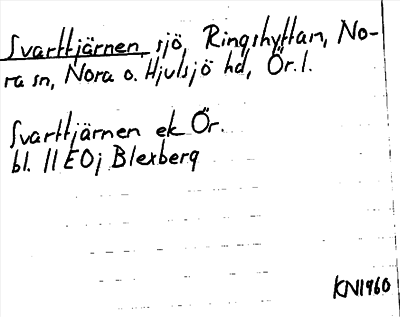 Svarttjärnen, sjö, Ringshyttan, No-
ra sn, Nora o. Hjulsjö hd, Ör. l.
Svarttjärnen ek Ör.
bl. 11E0j Blexberg
KN1960